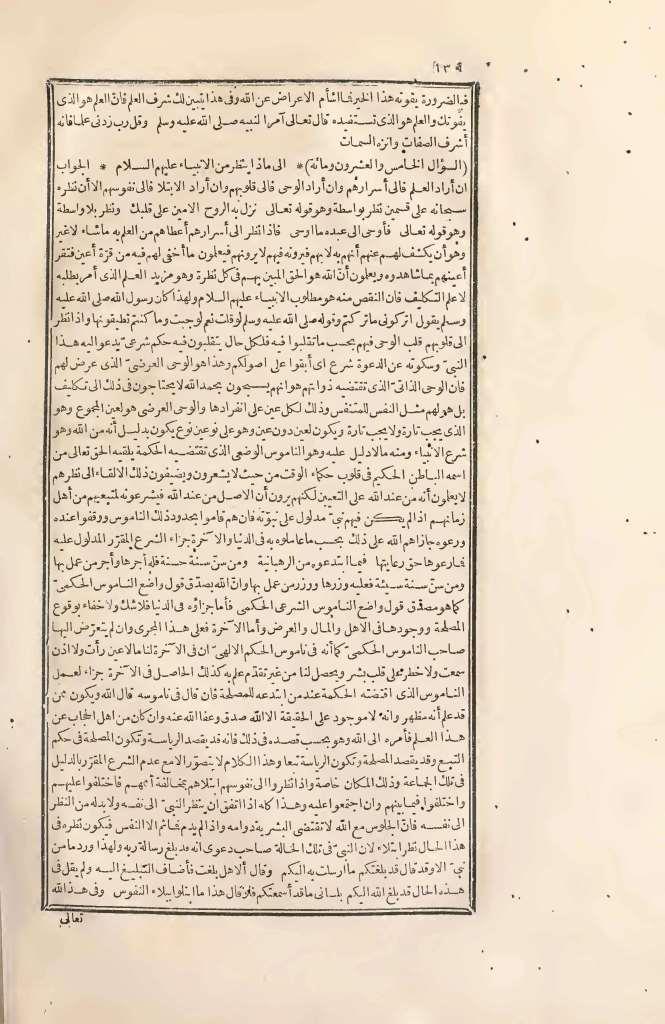 ١٣٩
فبالضرورة يفوته هذا الخير فما اشأم الاعراض عن الله وفى هذا يتبين لك شرف العلم فان العلم هو الذى
يفوتك والعلم هو الذى تستفيده قال تعالى آمرا لنبيه صلى الله عليه وسلم وقل رب زدنى علما فانه
أشرف الصفات وانزه السمات
(السؤال الخامس والعشرون ومائة) * الى ماذا ينتظر من الانبياء عليهم السلام * الجواب
ان أراد العلم فالى أسرارهم وان أراد الوحى فالى قلوبهم وان أراد الابتلا فالى نفوسهم الا أن نظره
سبحانه على قسمين نظر بواسطة وهو قوله تعالى نزل به الروح الامين على قلبك ونظر بلا واسطة
وهو قوله تعالى فأوحى الى عبده ما اوحى فاذا نظر الى أسرارهم أعطاهم من العلم به ماشاء لا غير
وهو أن يكشف لهم عنهم أنهم به لا بهم فيرونه فيهم لا يرونهم فيعلمون ما أخفى لهم فيه من قرّة أعين فتقر
أعينهم بما شاهدوه ويعلمون أن الله هو الحق المبين بهم فى كل نظرة وهو مزيد العلم الذى أمر بطلبه
لا علم التكليف فان النقص منه هو مطلوب الانبياء عليهم السلام ولهذا كان رسول الله صلى الله عليه
وسلم يقول اتركونى ما تركتكم وقوله صلى الله عليه وسلم لو قلت نعم لوجبت وما كنتم تطيقونها واذا نظر
الى قلوبهم قلب الوحى فيهم بحسب ما تقلبوا فيه فلكل حال يتقلبون فيه حكم شرعىّ يدعو اليه هذا
النبىّ وسكوته عن الدعوة شرع اى أبقوا على اصولكم وهذا هو الوحى العرضىّ الذى عرض لهم
فان الوحى الذاتىّ الذى تقتضيه ذواتهم هو انهم يسبحون بحمد الله لا يحتاجون فى ذلك الى تكليف
بل هو لهم مثل النفس للمتنفس وذلك لكل عين على انفرادها والوحى العرضى هو لعين المجموع وهو
الذى يجب تارة ولا يجب تارة ويكون لعين دون عين وهو على نوعين نوع يكون بدليل أنه من الله وهو
شرع الانبياء ومنه ما لا دليل عليه وهو الناموس الوضعى الذى تقتضيه الحكمة يلقيه الحق تعالى من
اسمه الباطن الحكيم فى قلوب حكماء الوقت من حيث لا يشعرون ويضيفون ذلك الالقاء الى نظرهم
لا يعلمون أنه من عند الله على التعيين لكنهم يرون أن الاصل من عند الله فيشرعونه لمتبعيهم من أهل
زمانهم اذا لم يكن فيهم نبىّ مدلول على نبوّته فان هم قاموا بحدود ذلك الناموس ووقفوا عنده
ورعوه جازاهم الله على ذلك بحسب ما عاملوه به فى الدنيا والآخرة جزاء الشرع المقرّر المدلول عليه
فما رعوها حق رعايتها فيما ابتدعوه من الرهبانية ومن سنّ سنة حسنة فله أجرها وأجر من عمل بها
ومن سنّ سنة سيئة فعليه وزرها ووزر من عمل بها وانّ الله يصدّق قول واضع الناموس الحكمىّ
كما هو مصدّق قول واضع الناموس الشرعى الحكمى فأما جزاؤه فى الدنيا فلا شك ولا خفاء بوقوع
المصلحة ووجودها فى الاهل والمال والعرض وأما الآخرة فعلى هذا المجرى وان لم يتعرّض اليها
صاحب الناموس الحكمىّ كما أنه فى ناموس الحكم الالهىّ ان فى الآخرة لنا ما لا عين رأت ولا اذن
سمعت ولا خطر على قلب بشر ويحصل لنا من غير تقدّم علم به كذلك الحاصل فى الآخرة جزاء لعمل
الناموس الذى اقتضته الحكمة عند من ابتدعه للمصلحة فان قال فى ناموسه قال الله ويكون ممن
قد علم أنه مظهر وانه لا موجود على الحقيقة الا الله صدق وعفا الله عنه وان كان من اهل الحجاب عن
هذا العلم فأمره الى الله وهو بحسب قصده فى ذلك فانه قد يقصد الرياسة وتكون المصلحة فى حكم
التبع وقد يقصد المصلحة وتكون الرياسة تبعا وهذا الكلام لا يتصوّر الا مع عدم الشرع المقرّر بالدليل
فى تلك الجماعة وذلك المكان خاصة واذا نظروا الى نفوسهم ابتلاهم بمخالفة أممهم فاختلفوا عليهم
واختلفوا فيما بينهم وان اجتمعوا عليه وهذا كله اذا اتفق ان ينتظر النبىّ الى نفسه ولا بد له من النظر
الى نفسه فانّ الجلوس مع الله لا تقتضى البشرية دوامه واذا لم يدم فما ثم الا النفس فيكون نظره فى
هذا الحال نظر ابتلاء لان النبىّ فى تلك الحالة صاحب دعوى انه قد بلغ رسالة ربه ولهذا ورد ما من
نبىّ الا وقد قال قد بلغتكم ما أرسلت به اليكم وقال ألا هل بلغت فأضاف التبليغ اليه ولم يقل فى
هذه الحال قد بلغ الله اليكم بلسانى ما قد أسمعتكم فلو قال هذا ما ابتلوا ببلاء النفوس وفى هذا لله
تعالى